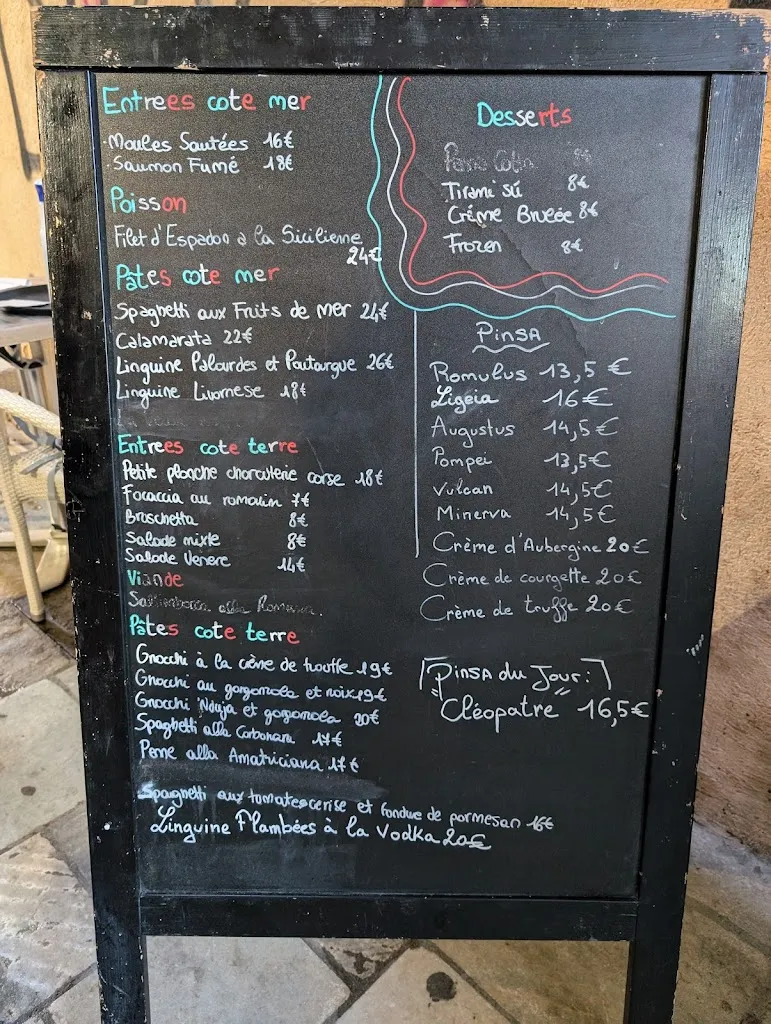 Entrees cote mer
Moules Sautées 16€
Saumon Fumé 18€
Poisson
Filet d'Espadon a la Sicilienne
24€
Pâtes cote mer
Spaghetti aux Fruits de mer 24€
Calamarata 22€
Linguine Palourdes et Poutargue 26€
Linguine Livornese 18€
Entrees cote terre
Petite planche charcuterie corse 18€
Focaccia au romarin 7€
Bruschetta 8€
Salade mixte 8€
Salade Venere 14€
Viande
Saltimbocca alla Romana.
Pâtes cote terre
Gnocchi à la crème de truffe 19€
Gnocchi au gorgonzola et noix 19€
Gnocchi Nduja et gorgonzola 20€
Spaghetti alla Carbonara 17€
Penne alla Amatriciana 17€
Spaghetti aux tomates cerise et fondue de parmesan 16€
Linguine Flambées à la Vodka 20€
Desserts
Tirami sú 8€
Créme Brulée 8€
Frozen 8€
PinsA
Romulus 13,5€
Ligeia 16€
Augustus 14,5€
Pompei 13,5€
Vulcan 14,5€
Minerva 14,5€
Crème d'Aubergine 20€
Crème de courgette 20€
Crème de truffe 20€
PinsA du Jour:
"Cléopatre" 16,5€